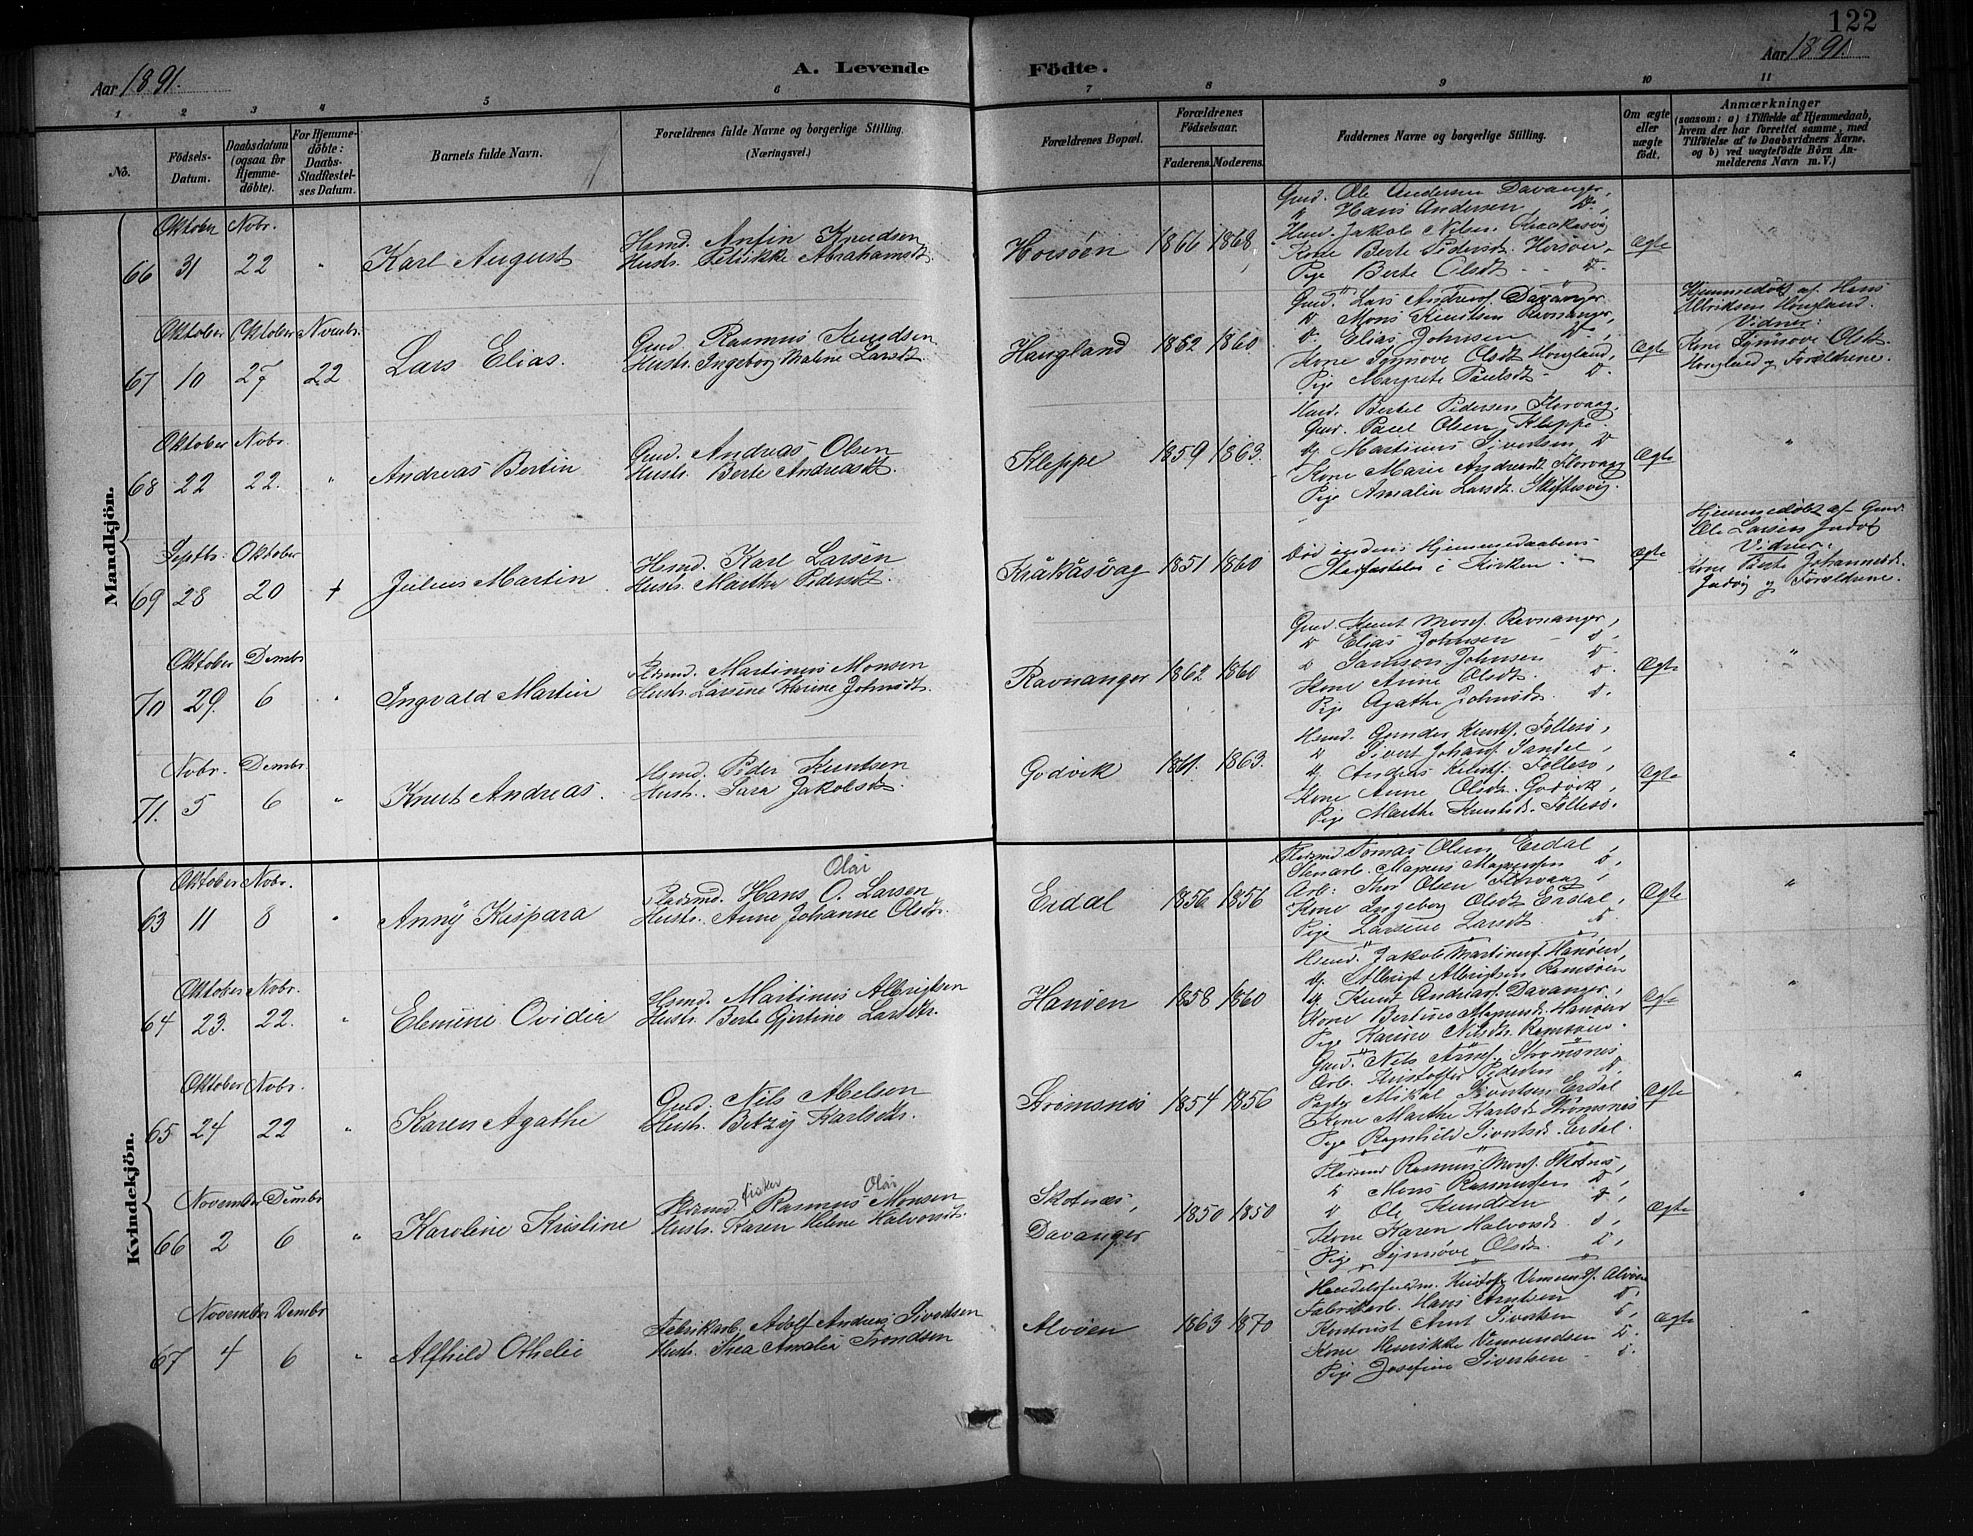 122
Aar 1891.
A. Levende Födte.
Aar 1891.
1 2 3 4 5 6 7 8 9 10 11
No.
Födsels-Datum.
Daabsdatum (ogsaa for Hjemmedöbte).
For Hjemmedöbte: Daabs-Stadfestelses Datum.
Barnets fulde Navn.
Forældrenes fulde Navne og borgerlige Stilling.
(Næringsvei.)
Forældrenes Bopæl.
Forældrenes Födselsaar.
Faderens. Moderens.
Faddernes Navne og borgerlige Stilling.
Om ægte eller uægte födt.
Anmærkninger
(saasom: a) i Tilfælde af Hjemmedaab, hvem der har forrettet samme, med Tilföielse af to Daabsvidners Navne. og b) ved uægtefödte Börn Anmelderens Navn m. V.)
Mandkjön.
66 Oktober 31 Nobr. 22 " Karl August
Hsmd. Anfin Knudsen
Hustr. Petrikke Abrahamsdt.
Horsöen 1866 1868
Gmd. Ole Andersen Davanger,
" Hans Andersen D.,
Hsmd. Jakob Nilsen
Kone Berte Pedersdt. Horsöen
Pige Berte Olsdt. D.
Ægte
67 Oktober 10 Oktober 27 Novmbr. 22 Lars Elias.
Gmd. Rasmus Knudsen
Hustr. Ingeborg Malene Larsdt.
Haugland 1852 1860
Gmd. Lars Andersf. Davanger
D. Mons Knutsen Revnanger,
D. Elias Johnsen D.
Kone Synnöve Olsdt. Hougland,
Pige Margrete Paulsdt. D.
Ægte
Hjemmedöbt af Hans
Hougland.
Vidner:
Kone Synnöve Olsdt.
Hougland og Forældrene.
68 Oktober 22 Nobr. 22. " Andreas Bertin
Gmd. Andreas Olsen
Hustr. Berte Andreasdt.
Kleppe 1859 1863.
Hsmd. Bertel Pedersen Florvaag,
Gmd. Paul Olsen Kleppe
Martinus Sivertsen D
Kone Marie Andreasdt. Florvaag
Pige Amalia Larsdt. Skiftesvig
Ægte "
69 Septbr. 28 Oktober 20 + Julius Martin
Hsmd. Karl Larsen
Hustr. Martha Pedersdt.
Kråkåsvag 1851 1860
Död inden Hjemmedaabens
Stadfæstelse i Kirken. —
Ægte
Hjemmedöbt af Gmd.
Ole Larsen Indvig
Vidner:
Kone Berte Johannesdt.
Indvig og Forældrene.
70 Oktober 29. Dembr 6 " Ingvald Martin
Martinus Monsen
Hustr. Larsine Karine Johnsdt.
Ravnanger 1862 1860
Gmd. Knut Monsf. Revnanger,
D Elias Johnsen D,
D Samson Johnsen D.
Kone Anne Olsdt. D.
Pige Agathe Johnsdt. D.
Ægte "
71. Nobr. 5 Dembr. 6 " Knut Andreas.
Hsmd. Peder Knutsen
Hustr. Sara Jakobsdt.
Godvik 1861. 1863.
Hsmd. Gunder Knutsf. Follesö,
D Sivert Johansf. Sandal,
Andreas Follesö,
Kone Anne Olsdt. Godvik,
Pige Marthe Knutsdt. Follesö.
Ægte "
Kvindekjön.
63 Oktober 11 Nobr. 8 " Anny Kaspara
Pladsmd. Hans O. Larsen
Olai
Hustr. Anne Johanne Olsdt.
Erdal 1856 1856
Pladsmd Tomas Olsen Erdal,
Stenarb. Magnus Magnussen D,
Arb. Thor Olsen Florvaag,
Kone Ingeborg Olsdt Erdal,
Pige Larsine Larsdt D
Ægte "
64 Oktober 23. Nobr. 22. " Elemine Ovidia
Hsmd. Martinus Albrigtsen
Hustr. Berte Gjertine Larsdtr.
Hanöen 1858 1860
Hsmd. Jakob Martinusf. Hanöen,
Albrigt Albrigtsen Ramsöen
Knut Andersf. Davanger,
Kone Bertine Magnusdt. Hanöen
Pige Karine Nilsdt. Ramsöen.
Ægte "
65 Oktober 24 Nobr. 22 " Karen Agathe
Gmd. Nils Nielsen
Hustr. Betzy Karlsdtr.
Strömsnes 1854 1856
Gmd. Nils Strömsnes
Arb. Kristoffer Pedersen D,
Mikal Sivertsen Erdal
Kone Marthe Karlsdt. Strömsnes
Pige Ragnhild Sivertsdt. Erdal.
Ægte "
66 November 2 Dembr 6 " Karoline Kristine
fisker Olai
Pladsmd Rasmus Monsen
Hustr. Karen Helene Halvorsdt.
Skotnæs,
Davanger
1850 1850
Pladsmd Rasmus Monsf. Skotnes,
D Mons Rasmussen D,
D Ole Knudsen D,
Kone Karen Halvorsdt. D,
Pige Synnöve Olsdt. D,
Ægte "
67 November 4 Dembr 6 " Alfhild Othelie
Fabrikarb. Adolf Andreas Sivertsen
Hustr. Thea Amalia Trondsen
Alvöen 1863 1870
Handelsfuldm. Kristofer Vemundsf. Alvöen
Fabrikarb. Hans Arntsen D.
Kontorist Arnt Sivertsen D,
Kone Henrikke Vemundsen D.
Pige Josefine Sivertsen D.
Ægte "